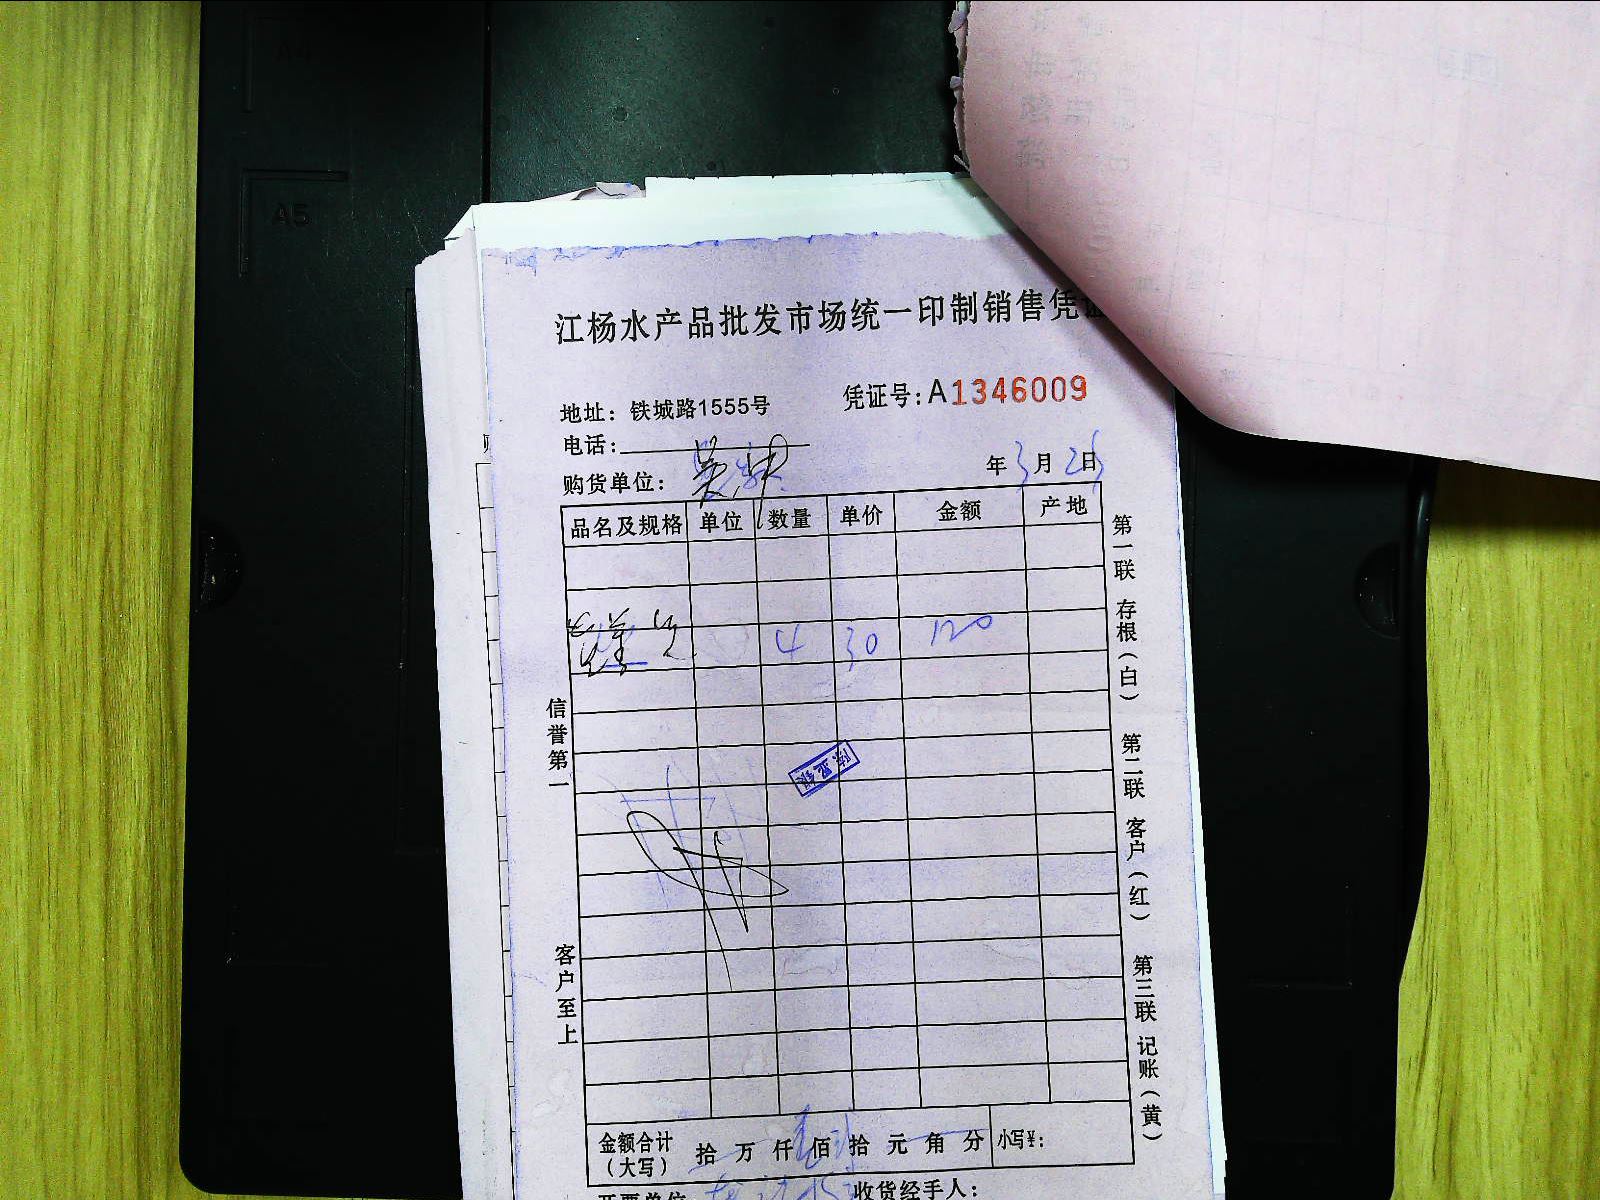 A4
A5
江杨水产品批发市场统一印制销售凭证
地址：铁城路1555号
凭证号：A1346009
电话：
购货单位：
年 3 月 26 日
品名及规格 单位 数量 单价 金额 产地
4 30 120
信誉第一
客户至上
第一联 存根（白） 第二联 客户（红） 第三联 记账（黄）
金额合计（大写） 拾 万 仟 佰 拾 元 角 分 小写¥：
开票单位 收货经手人：